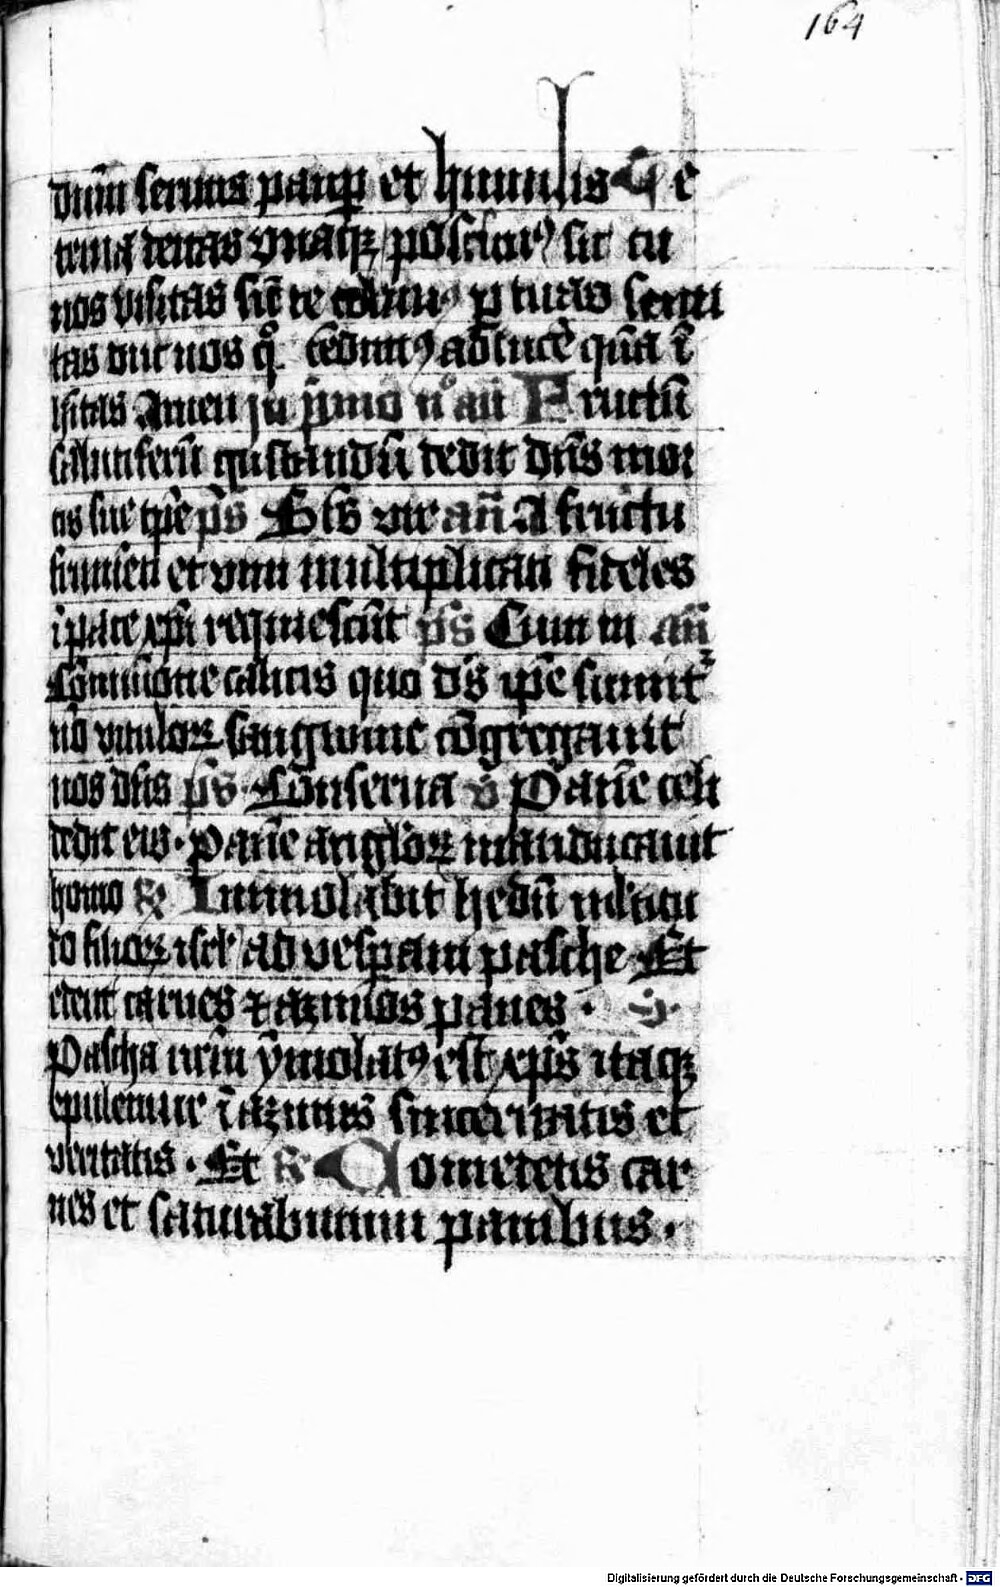 164
dnm̄ seruus paup et humilis Te
trina deitas vnaqꝫ poscimꝰ sic tu
nos visitas sic̄ te colimꝰ p tuas semi
tas duc nos qͦ tendimꝰ ad lucē quā ī
h̄itas Amen jn p̄mo nͦ an̄ Fructū
salutiferū gustandū dedit dn̄s mor
tis sue tp̄e p̄s Bt̄s vir an̄ A fructu
frumēti et vini multiplicati fideles
ī pace xp̄i requiescūt p̄s Cum in an̄
Cōmunione calicis quo ds̄ ip̄e sumit͛
nō vituloꝝ sanguine cōgregauit
nos dn̄s p̄s Conserua v̄ Panē celi
dedit eis · Panē angl̓oꝝ manducauit
homo ꝶ Immolabit hedū multitu
do filioꝝ isrl̓ ad vesꝑam pasche Et
edent carnes ⁊ azimos panes · v̄
Pascha nr̄m ymolatꝰ est xp̄s itaqꝫ
epulemur ī azimis sinceritatis et
veritatis · Et ꝶ Comedetis car
nes et saturabimini panibus ·
Digitalisierung gefördert durch die Deutsche Forschungsgemeinschaft - DFG